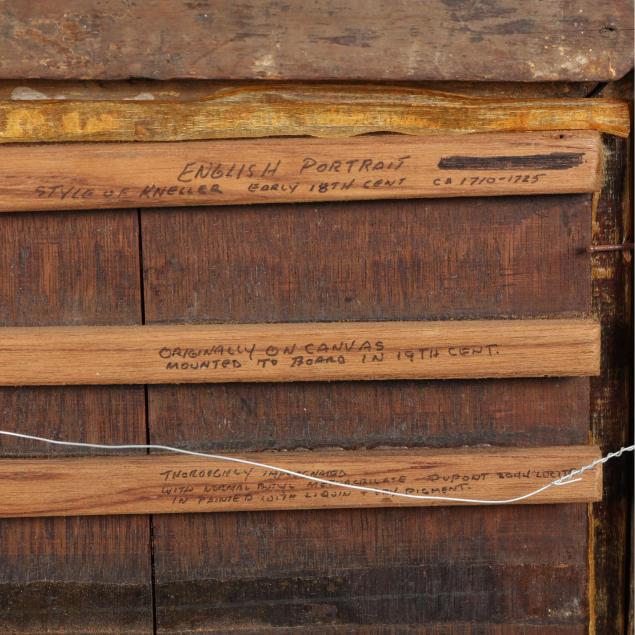 ENGLISH PORTRAIT
STYLE OF KNELLER EARLY 18TH CENT CA 1710-1725
ORIGINALLY ON CANVAS
MOUNTED TO BOARD IN 19TH CENT.
THOROUGHLY IMPREGNATED
WITH NORMAL BUTYL DUPONT
IN PAINTED WITH LIQUIN PIGMENT.